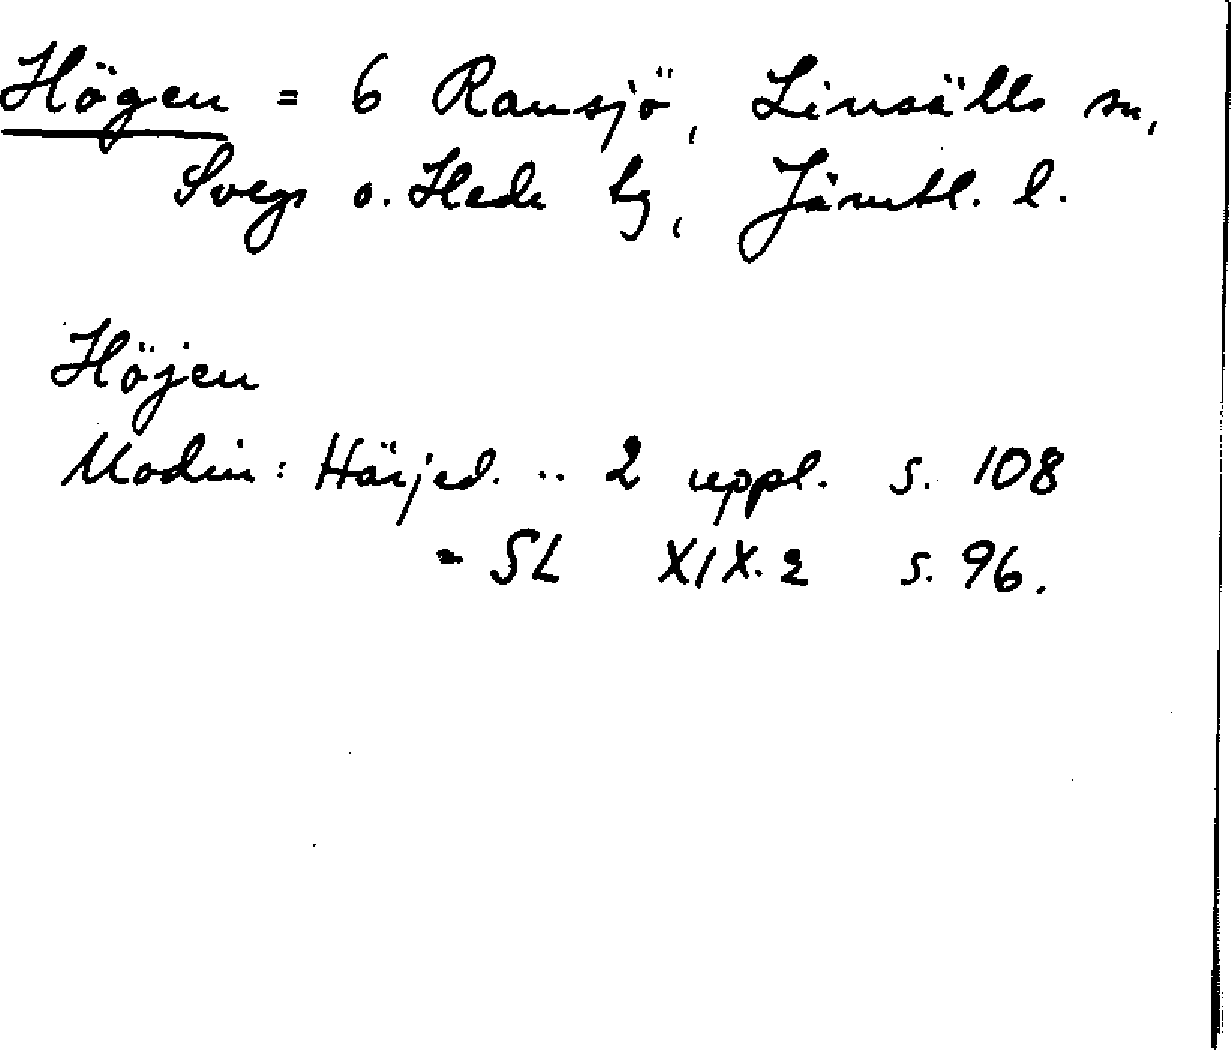 Högen = 6 Ransjö, Linsälls sn,
Svegs o. Hede tg, Jämtl. l.
Höjen
Modin: Härjed. .. 2 uppl. s. 108
= SL XIX.2 s. 96.